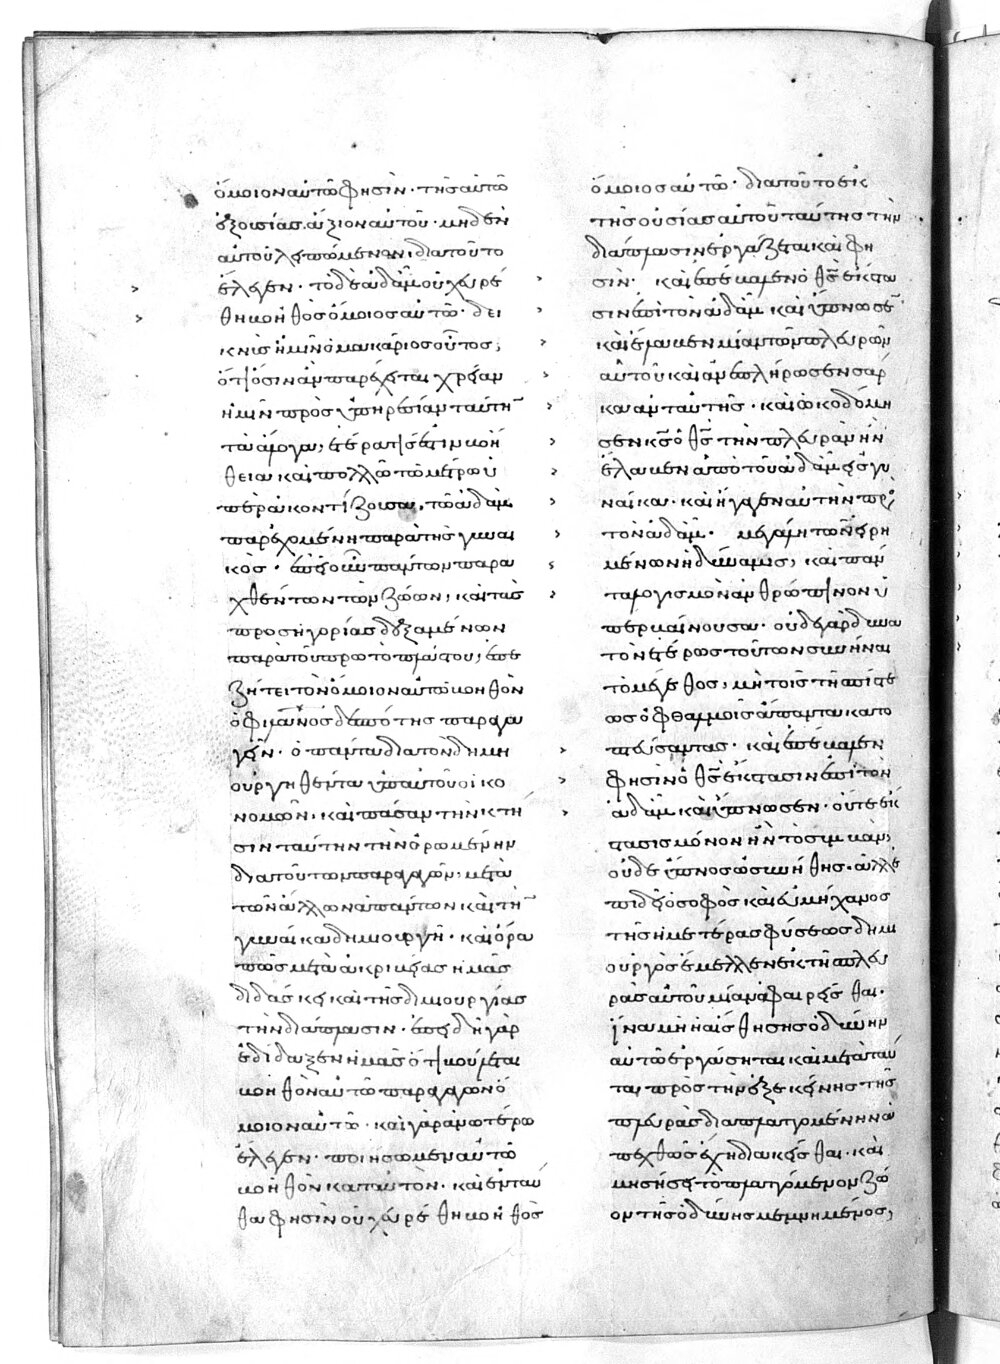 ὅμοιον αὐτῶ φησὶν· τῆς αὐτῶ
οὐσίας· ἄξιον αὐτοῦ· μηδὲν
αὐτοῦ λειπόμενον, διατοῦτο
ἔλεγεν· τῶ δὲ ἀδὰμ οὐχ εὑρέ
θη βοηθὸς ὅμοιος αὐτῶ· δεί
κνυσιν ἡμῖν ὁ μακάριος οὗτος,
ὅτι ὅσην ἂν παρέχεται χρείαν
ἡμῖν πρὸς ὑπηρεσίαν ταύτη
τὰ ἄλογα, ἑτέρα τίς ἐστιν βοή
θεια καὶ πολλῶ τῶ μέτρω ὑ
περακοντίζουσα, τῶ ἀδὰμ
παρεχομένη παρὰ τῆς γυναι
κός· ἐπεὶ οὖν πάντων παρα
χθέντων τῶν ζώων, καὶ τὰς
προσηγορίας δεξαμένων
παρὰ τοῦ πρωτοπλάστου, ἐπε
ζήτει τὸν ὅμοιον αὐτῶ βοηθὸν
ὁ φιλάνος δεσπότης παραγα
γεῖν· ὁ πάντα διὰ τὸν δημι
ουργηθέντα ὑπ αὐτοῦ οἰκο
νομῶν, καὶ πᾶσαν τὴν κτί
σιν ταύτην τὴν ὁρωμένην
διὰ τοῦτον παραγαγών, μετὰ
τῶν ἄλλων ἁπάντων καὶ τὴν
γυναῖκα δημιουργεῖ· καὶ ὅρα
πῶς μετὰ ἀκριβείας ἡμᾶς
διδάσκει καὶ τῆς δημιουργίας
τὴν διάπλασιν· ἐπειδὴ γὰρ
ἐδίδαξεν ἡμᾶς ὅτι βούλεται
βοηθὸν αὐτῶ παραγαγεῖν ὅ
μοιον αὐτῶ· καὶ γὰρ ἀνωτέρω
ἔλεγεν· ποιήσωμεν αὐτῶ
βοηθὸν κατ αὐτὸν· καὶ ἐνταῦ
θα φησὶν οὐχ εὑρέθη βοηθὸς
ὅμοιος αὐτῶ· διατοῦτο ἐκ
τῆς οὐσίας αὐτοῦ ταύτης τὴν
διάπλασιν ἐργάζεται καὶ φη
σίν· καὶ ἐπέβαλεν ὁ θς ἔκστα
σιν ἐπὶ τὸν ἀδὰμ καὶ ὕπνωσε
καὶ ἔλαβεν μίαν τῶν πλευρῶν
αὐτοῦ καὶ ἀνεπλήρωσεν σάρ
κα ἀντ αὐτῆς· καὶ ὠκοδόμη
σεν κς ὁ θς τὴν πλευρὰν ἣν
ἔλαβεν ἀπὸ τοῦ ἀδὰμ εἰς γυ
ναῖκα· καὶ ἤγαγεν αὐτὴν πρὸς
τὸν ἀδάμ· μεγάλη τῶν εἰρη
μένων ἡ δύναμις, καὶ πάν
τα λογισμὸν ἀνθρώπινον ὑ
περβαίνουσα· οὐδὲ γὰρ δυνα
τὸν ἑτέρως τούτων συνεῖναι
τὸ μέγεθος, μὴ τοῖς τῆς πίστε
ως ὀφθαλμοῖς ἅπαντα κατο
πτεύσαντας· καὶ ἐπέβαλεν
φησὶν ὁ θς ἔκστασιν ἐπὶ τὸν
ἀδὰμ καὶ ὕπνωσεν· οὔτε ἔκ
στασις μόνον ἦν τὸ συμβάν,
οὐδὲ ὕπνος ὁ συνήθης· ἀλλ ἐ
πειδὴ ὁ σοφὸς καὶ εὐμήχανος
τῆς ἡμετέρας φύσεως δημι
ουργὸς ἔμελλεν ἐκ τῶν πλευ
ρῶν αὐτοῦ μίαν ἀφαιρεῖσθαι·
ἵνα μὴ ἡ αἴσθησις ὀδύνην
αὐτῶ ἐργάσηται καὶ μετὰ ταῦ
τα, πρὸς τὴν ἐξ ἐκείνης τῆς
πλευρᾶς διαπλαττομένην ἀ
πεχθῶς ἔχῃ διακεῖσθαι· καὶ
μισήσῃ τὸ πλαττόμενον ζῶ
ον τῆς ὀδύνης μεμνημένος,